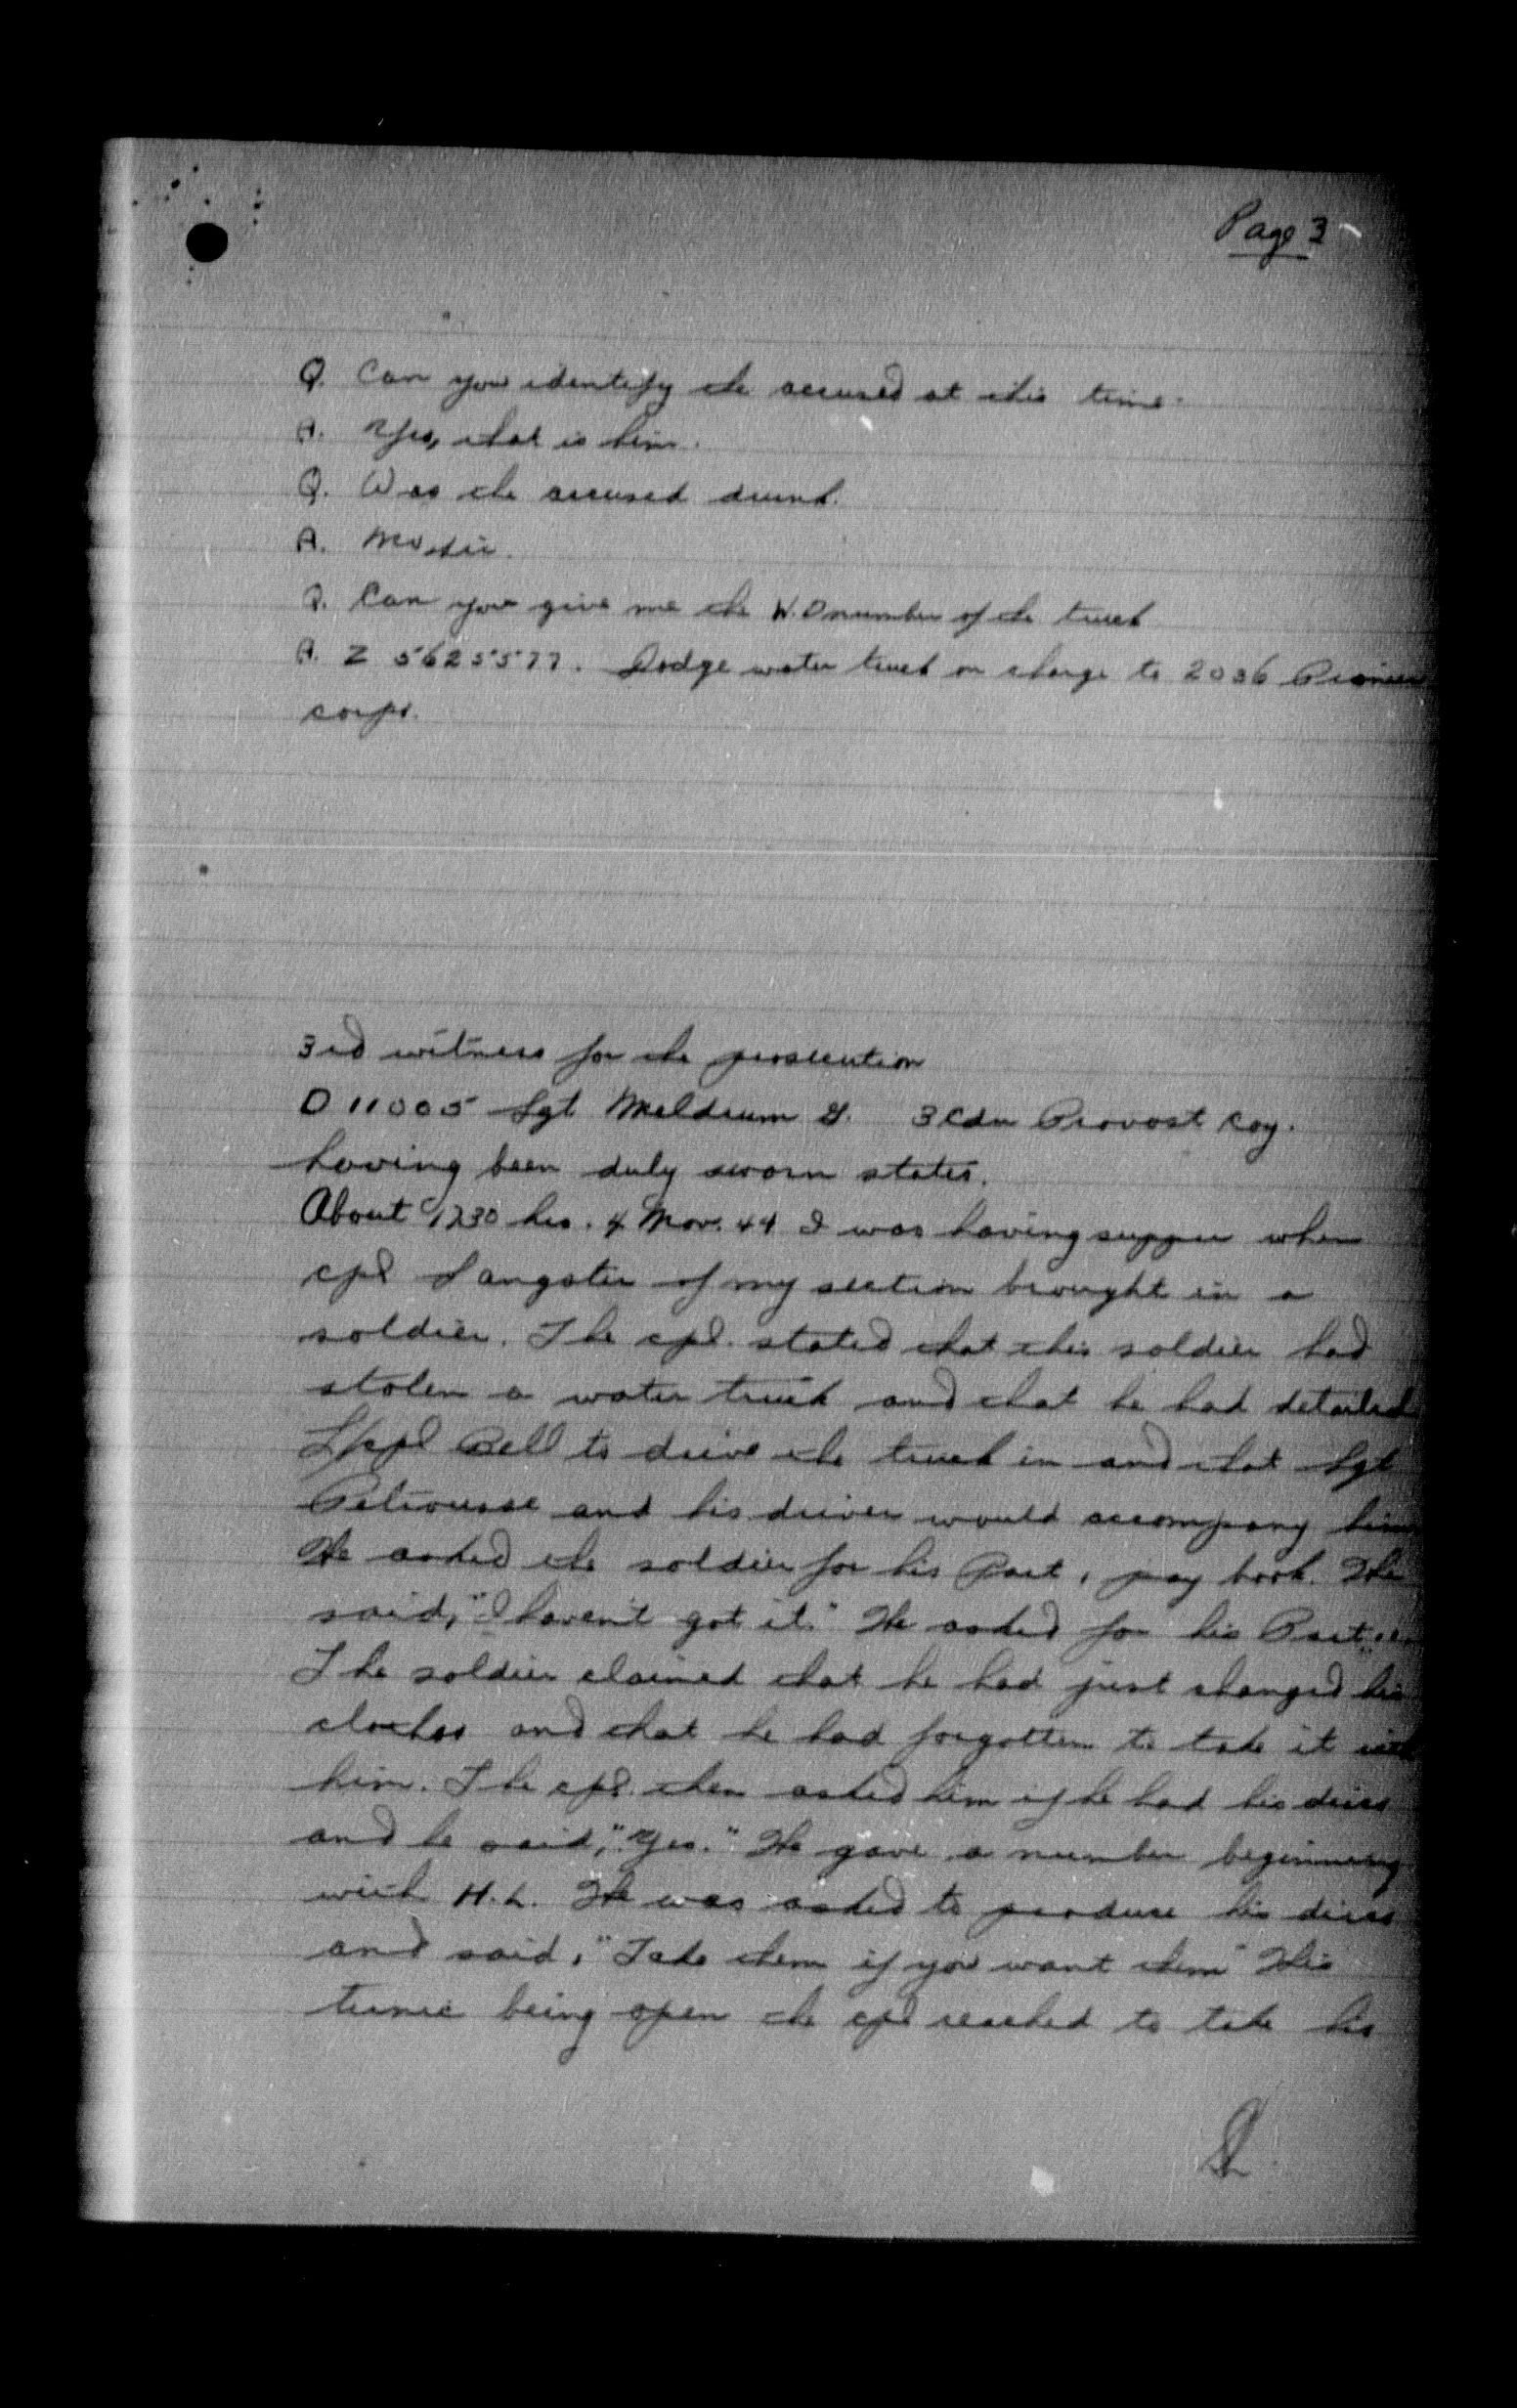 Page 3
Q. Can you identify the accused at this time.
A. Yes, that is him.
Q. Was the accused drunk.
A. No sir.
Q. Can you give me the W.D number of the truck
A. Z 5625577. Dodge water truck on charge to 2036 Pioneer
corps.
3rd witness for the prosecution
D 11005 Sgt Meldrum G. 3 Cdn Provost Coy.
having been duly sworn states.
About 1730 hrs. 4 Nov. 44 I was having supper when
cpl Sangster of my section brought in a
soldier. The cpl. stated that this soldier had
stolen a water truck and that he had detailed
L/cpl Bell to drive the truck in and that Sgt
and his driver would accompany him
He asked the soldier for his Part 1 pay book. He
said, "I haven't got it." He asked for his Part
The soldier claimed that he had just changed his
clothes and that he had forgotten to take it with
him. The cpl. then asked him if he had his discs
and he said, "Yes." He gave a number beginning
with H.L. He was asked to produce his discs
and said, "Take them if you want them" His
tunic being open the cpl reached to take his